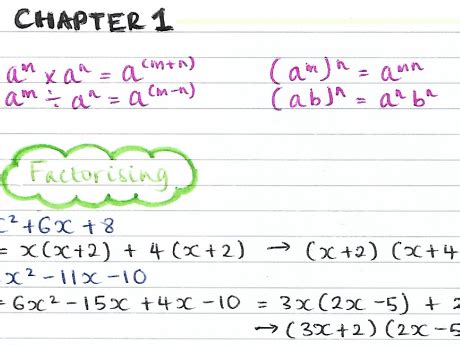 CHAPTER 1
aᵐ × aⁿ = a⁽ᵐ⁺ⁿ⁾ (aᵐ)ⁿ = aᵐⁿ
aᵐ ÷ aⁿ = a⁽ᵐ⁻ⁿ⁾ (ab)ⁿ = aⁿbⁿ
Factorising
x² + 6x + 8
= x(x+2) + 4(x+2) → (x+2)(x+4
x² - 11x - 10
= 6x² - 15x + 4x - 10 = 3x(2x-5) + 2
→ (3x+2)(2x-5